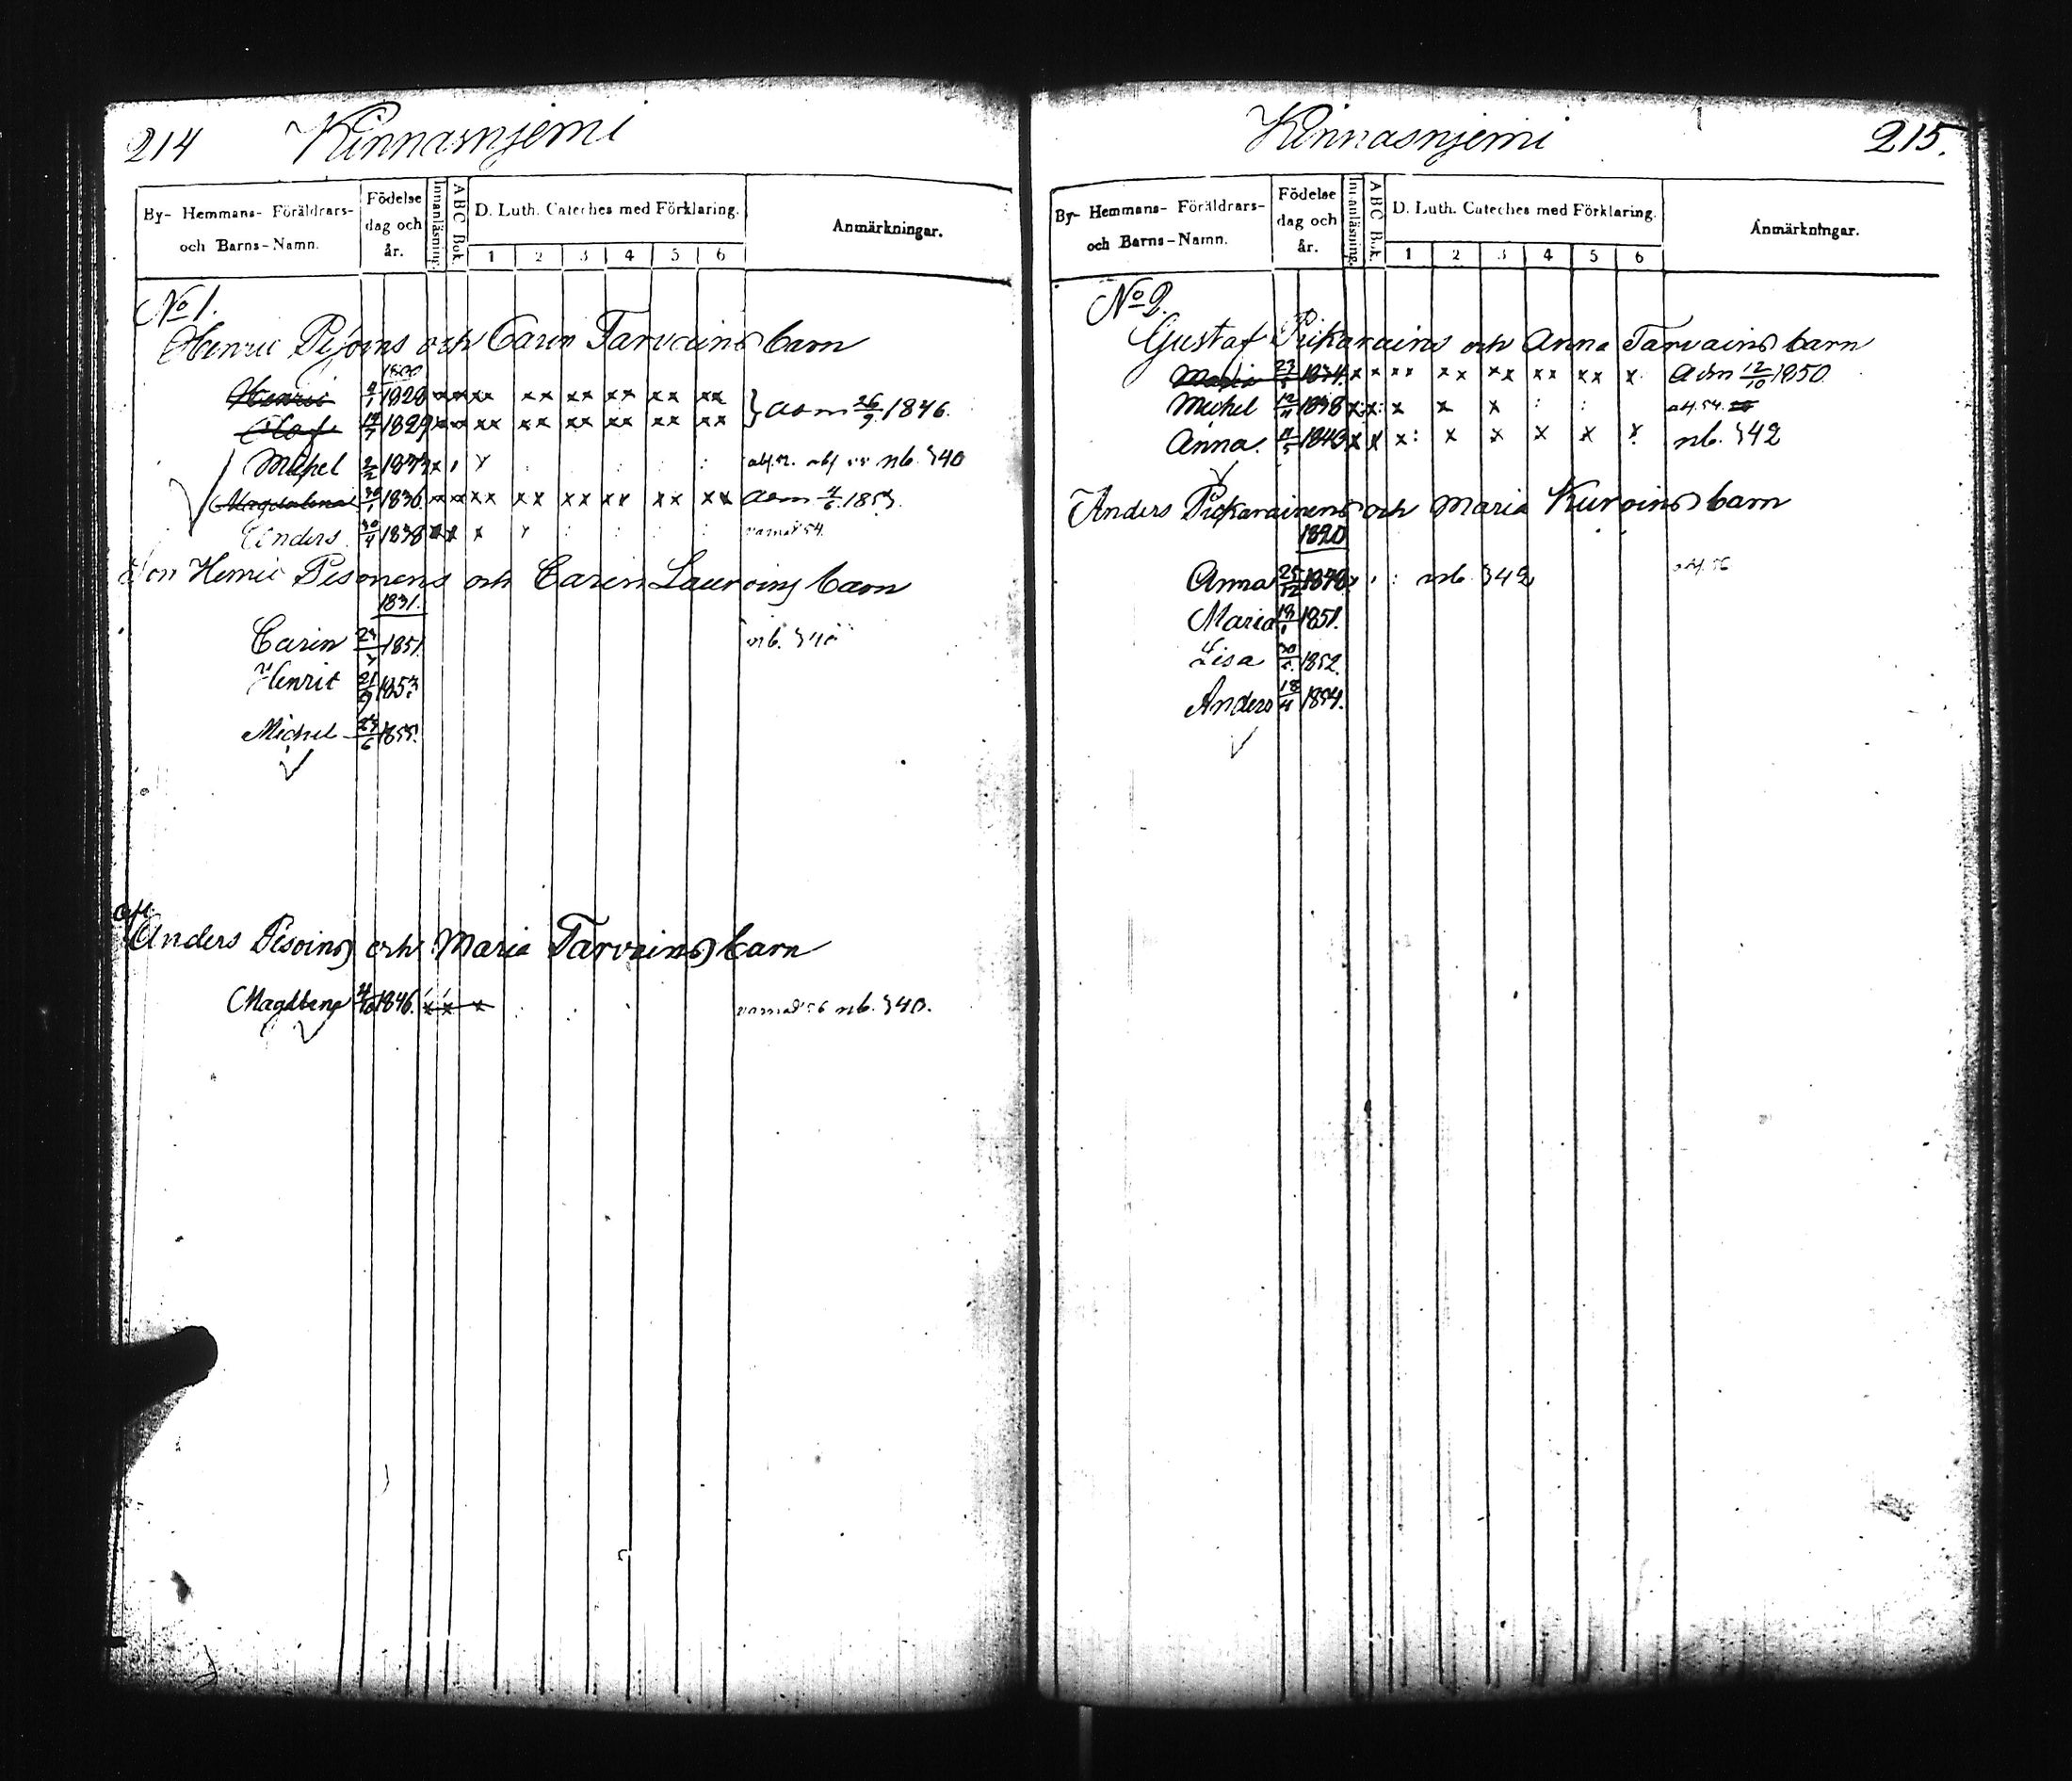 214 Kinnasnjemi
By- Hemmans- Föräldrars- och Barns-Namn. Födelse dag och år. Innanläsning. ABC Bok. D. Luth. Cateches med Förklaring. 1 2 3 4 5 6 Anmärkningar.
No 1.
Henric Pesoins och Carin Tarvains barn
1800
Henric 1828 xx xx xx xx xx xx xx xx
Olof 1829 xx xx xx xx xx xx xx xx } adm 26/9 1846.
Michel 2/2 1833 x nb. 340
Magdalena 30/1 1836 xx xx xx xx xx xx xx xx adm 4/6 1853.
Anders 30/4 1838 x x x
Son Henric Pesonens och Carin Lauroins barn
1831.
Carin 1851. nb. 340
Henric 21/9 1853
Michel 1855.
Anders Pesoins och Maria Tarvains barn
Magdlena 1846. x x x nb. 340.
Kinnasnjemi 215.
By- Hemmans- Föräldrars- och Barns-Namn. Födelse dag och år. Innanläsning. ABC Bok. D. Luth. Cateches med Förklaring. 1 2 3 4 5 6 Anmärkningar.
No 2.
Gustaf Pickarains och Anna Tarvains barn
Maria 1834. x x xx xx xx xx xx x adm 12/10 1850.
Michel 1838 x: x: x x x : :
Anna. 1843 x x x: x x x x x nb. 342
Anders Pickarainens och Maria Kuroins barn
1820
Anna 25/12 1848 nb. 342
Maria 1851.
Lisa 1852.
Anders 18/11 1854.